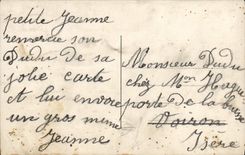 petite Jeanne
remercie son
Dudu de sa
jolie carte
et lui envoie
un gros mimi
Jeanne
Monsieur Dudu
chez Mon Hugue
porte de la
Voiron
Isère